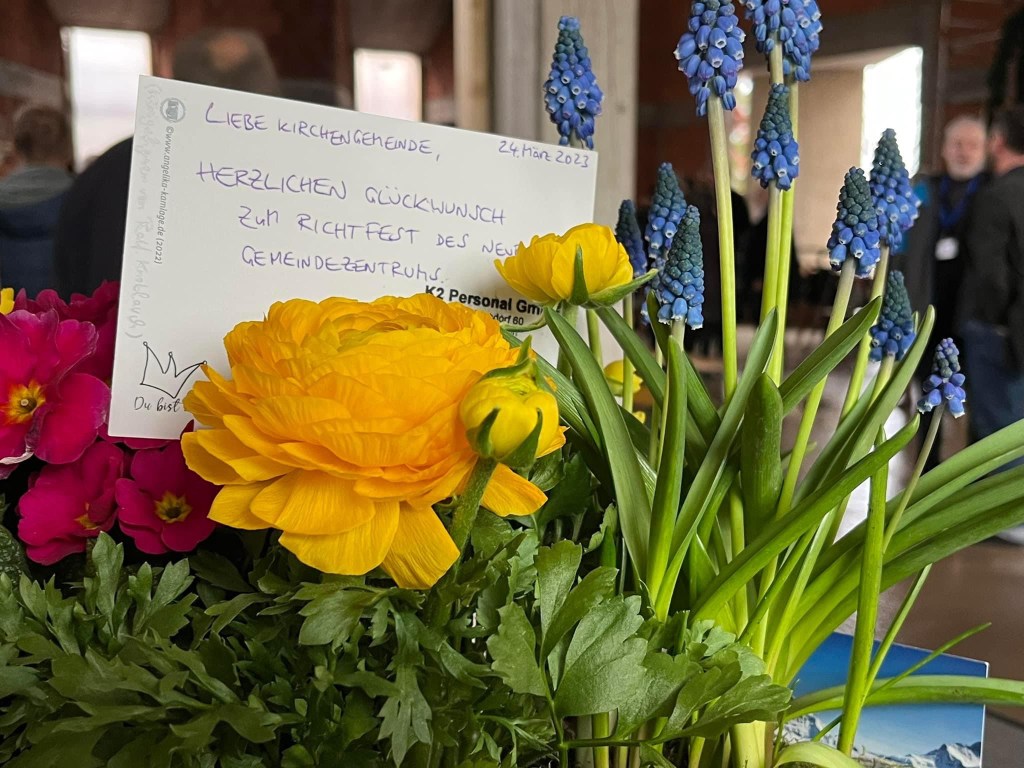 LIEBE KIRCHENGEMEINDE,
24. MÄRZ 2023
HERZLICHEN GLÜCKWUNSCH
ZUM RICHTFEST DES
GEMEINDEZENTRUMS.
K2 Personal
60
Du bist
©www.angelika-kamlage.de (2022)